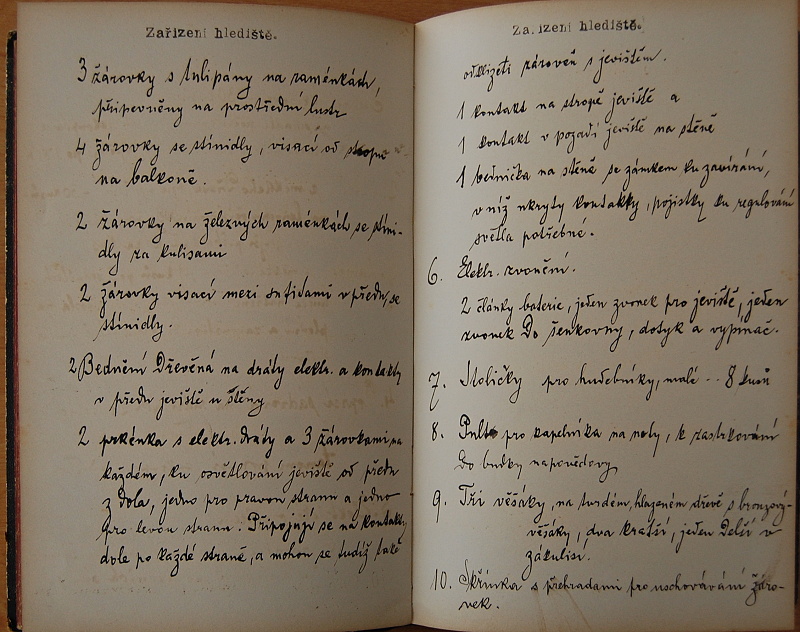 Zařízení hlediště.
3 žárovky s tulipány na raménkách,
připevněny na prostřední lustr
4 žárovky se stínidly, visací od stropu
na balkoně.
2 žárovky na železných raménkách se stíni-
dly za kulisami
2 žárovky visací mezi sufidami v předu, se
stínidly.
2 Bednění Dřevěná na dráty elektr. a kontakty
v předu jeviště u stěny
2 prkénka s elektr. dráty a 3 žárovkami, na
každém, ku osvětlování jeviště od předu
z Dola, jedno pro pravou stranu a jedno
pro levou stranu. Připojují se na kontakty
dole po každé straně, a mohou se tudíž také
Za.ízení hlediště.
odklizeti zároveň s jevištěm.
1 kontakt na stropě jeviště a
1 kontakt v pozadí jeviště na stěně
1 bednička na stěně se zámkem ku zavírání,
v níž ukryty kontakty, pojistky ku regulování
světla potřebné.
6. Elektr. zvonění.
2 články baterie, jeden zvonek pro jeviště, jeden
zvonek Do šenkovny, dotyk a vypínač.
7. Stoličky pro hudebníky, malé -- 8 kusů
8. Pult pro kapelníka na noty, k zastrkování
Do budky napovědovy
9. Tři věšáky, na tvrdém, hlazeném dřevě s bronzový-
věšáky, dva kratší, jeden Delší v
zákulisí.
10. Skřínka s přehradami pro uschovávání žáro-
vek.